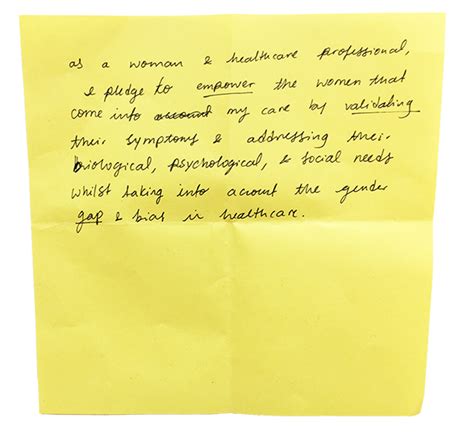 as a woman & healthcare professional,
I pledge to empower the women that
come into account my care by validating
their symptoms & addressing their
biological, psychological, & social needs
whilst taking into account the gender
gap & bias in healthcare.